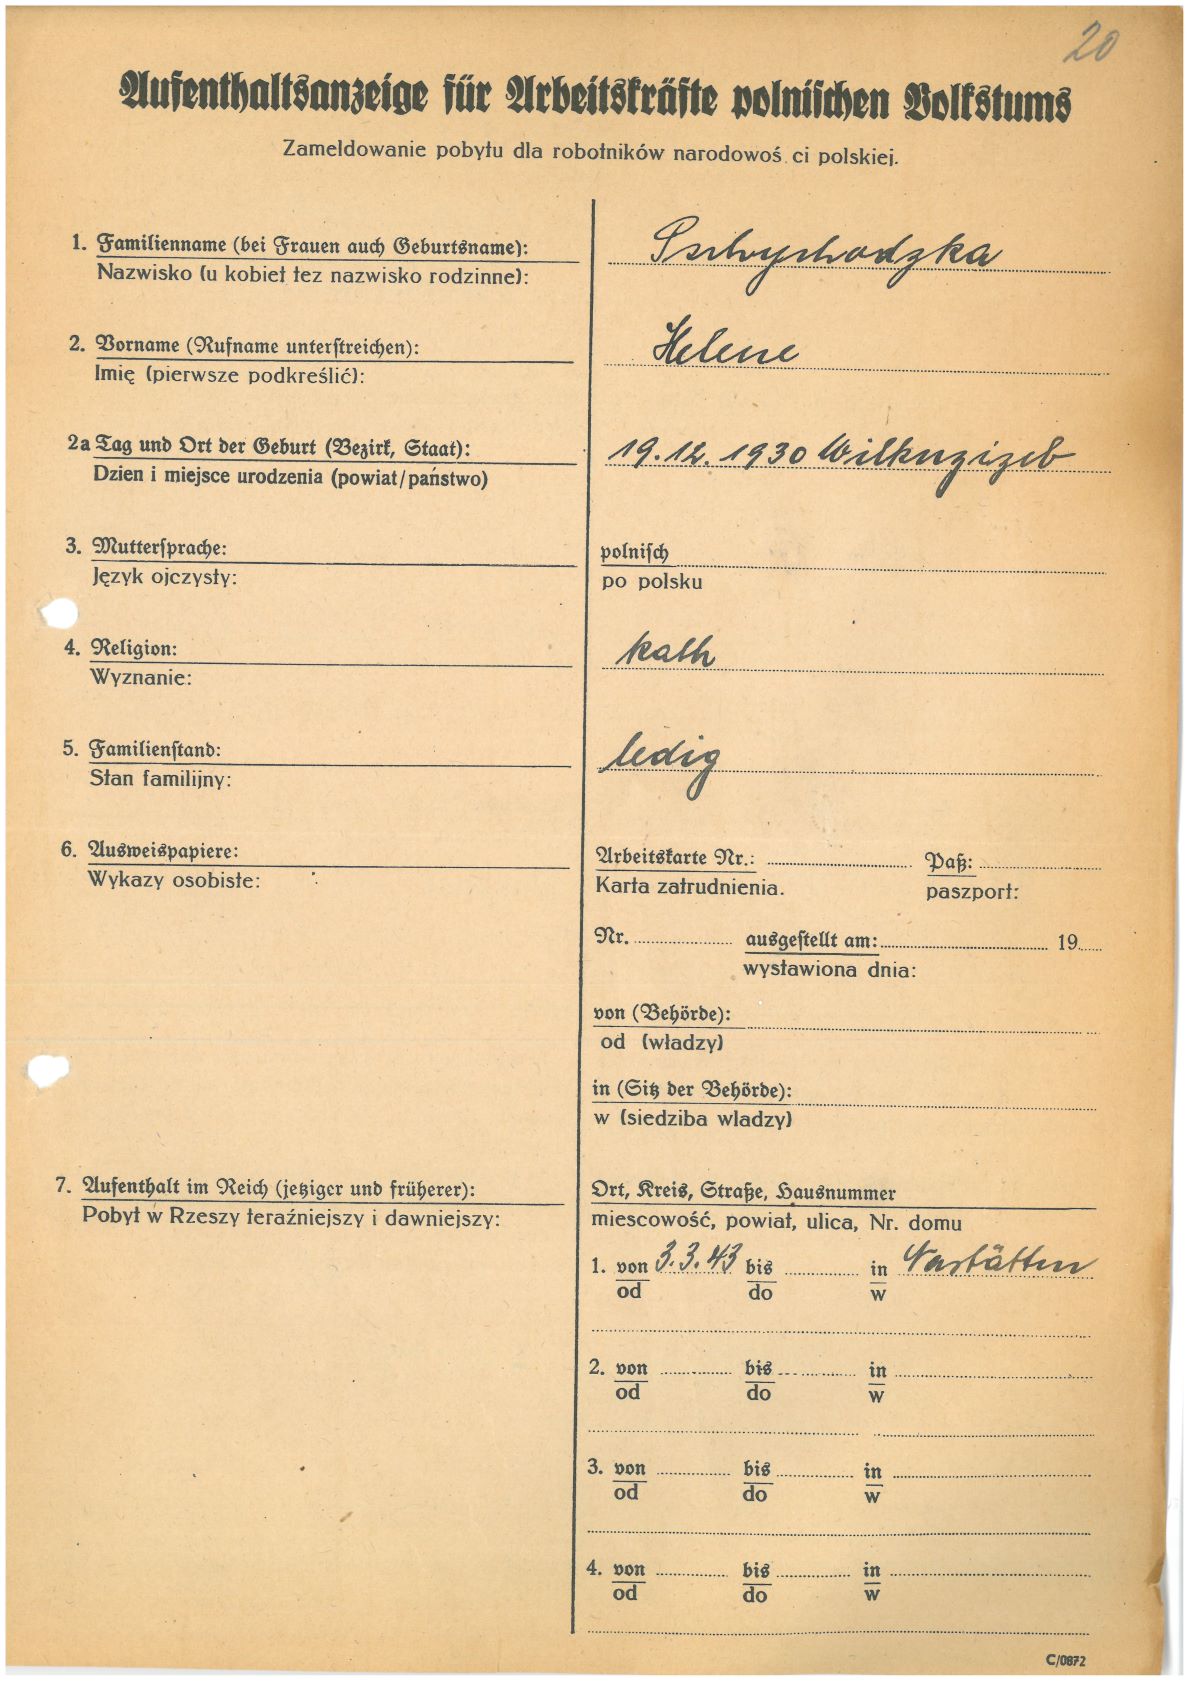 20
Aufenthaltsanzeige für Arbeitskräfte polnischen Volkstums
Zameldowanie pobytu dla robotników narodowoś ci polskiej.
1. Familienname (bei Frauen auch Geburtsname):
Nazwisko (u kobiet tez nazwisko rodzinne):
Pschychodzka
2. Vorname (Rufname unterstreichen):
Imię (pierwsze podkreślić):
Helene
2a Tag und Ort der Geburt (Bezirk, Staat):
Dzien i miejsce urodzenia (powiat/państwo)
19.12.1930
3. Muttersprache:
Język ojczysty:
polnisch
po polsku
4. Religion:
Wyznanie:
kath
5. Familienstand:
Stan familijny:
ledig
6. Ausweispapiere:
Wykazy osobiste:
Arbeitskarte Nr.: Paß:
Karta zatrudnienia. paszport:
Nr. ausgestellt am: 19
wystawiona dnia:
von (Behörde):
od (władzy)
in (Sitz der Behörde):
w (siedziba wladzy)
7. Aufenthalt im Reich (jetziger und früherer):
Pobyt w Rzeszy teraźniejszy i dawniejszy:
Ort, Kreis, Straße, Hausnummer
miescowość, powiat, ulica, Nr. domu
1. von 3.3.43 bis in Nastätten
od do w
2. von bis in
od do w
3. von bis in
od do w
4. von bis in
od do w
C/0872